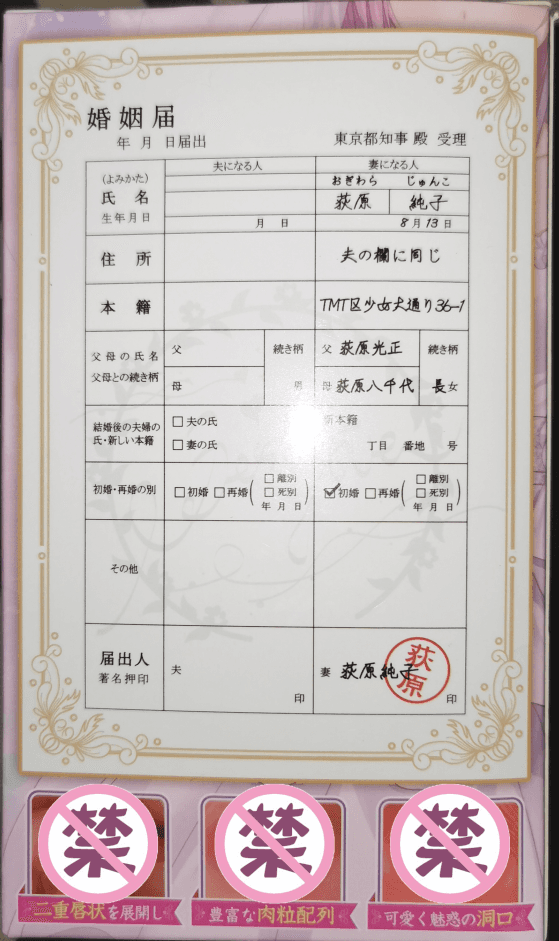 婚姻届
年 月 日届出
東京都知事 殿 受理
夫になる人
妻になる人
(よみかた)
おぎわら じゅんこ
氏名
荻原 純子
生年月日
月 日
8月13日
住所
夫の欄に同じ
本籍
TMT区少女犬通り36-1
父母の氏名
父母との続き柄
父
続き柄
父 荻原光正
続き柄
母
男
母 荻原八千代
長女
結婚後の夫婦の
氏・新しい本籍
夫の氏
妻の氏
新本籍
丁目 番地 号
初婚・再婚の別
初婚 再婚 (離別 死別 年 月 日)
初婚 再婚 (離別 死別 年 月 日)
その他
届出人
著名押印
夫
印
妻 荻原純子
荻原
印
禁
禁
禁
二重唇状を展開し
豊富な肉粒配列
可愛く魅惑の洞口